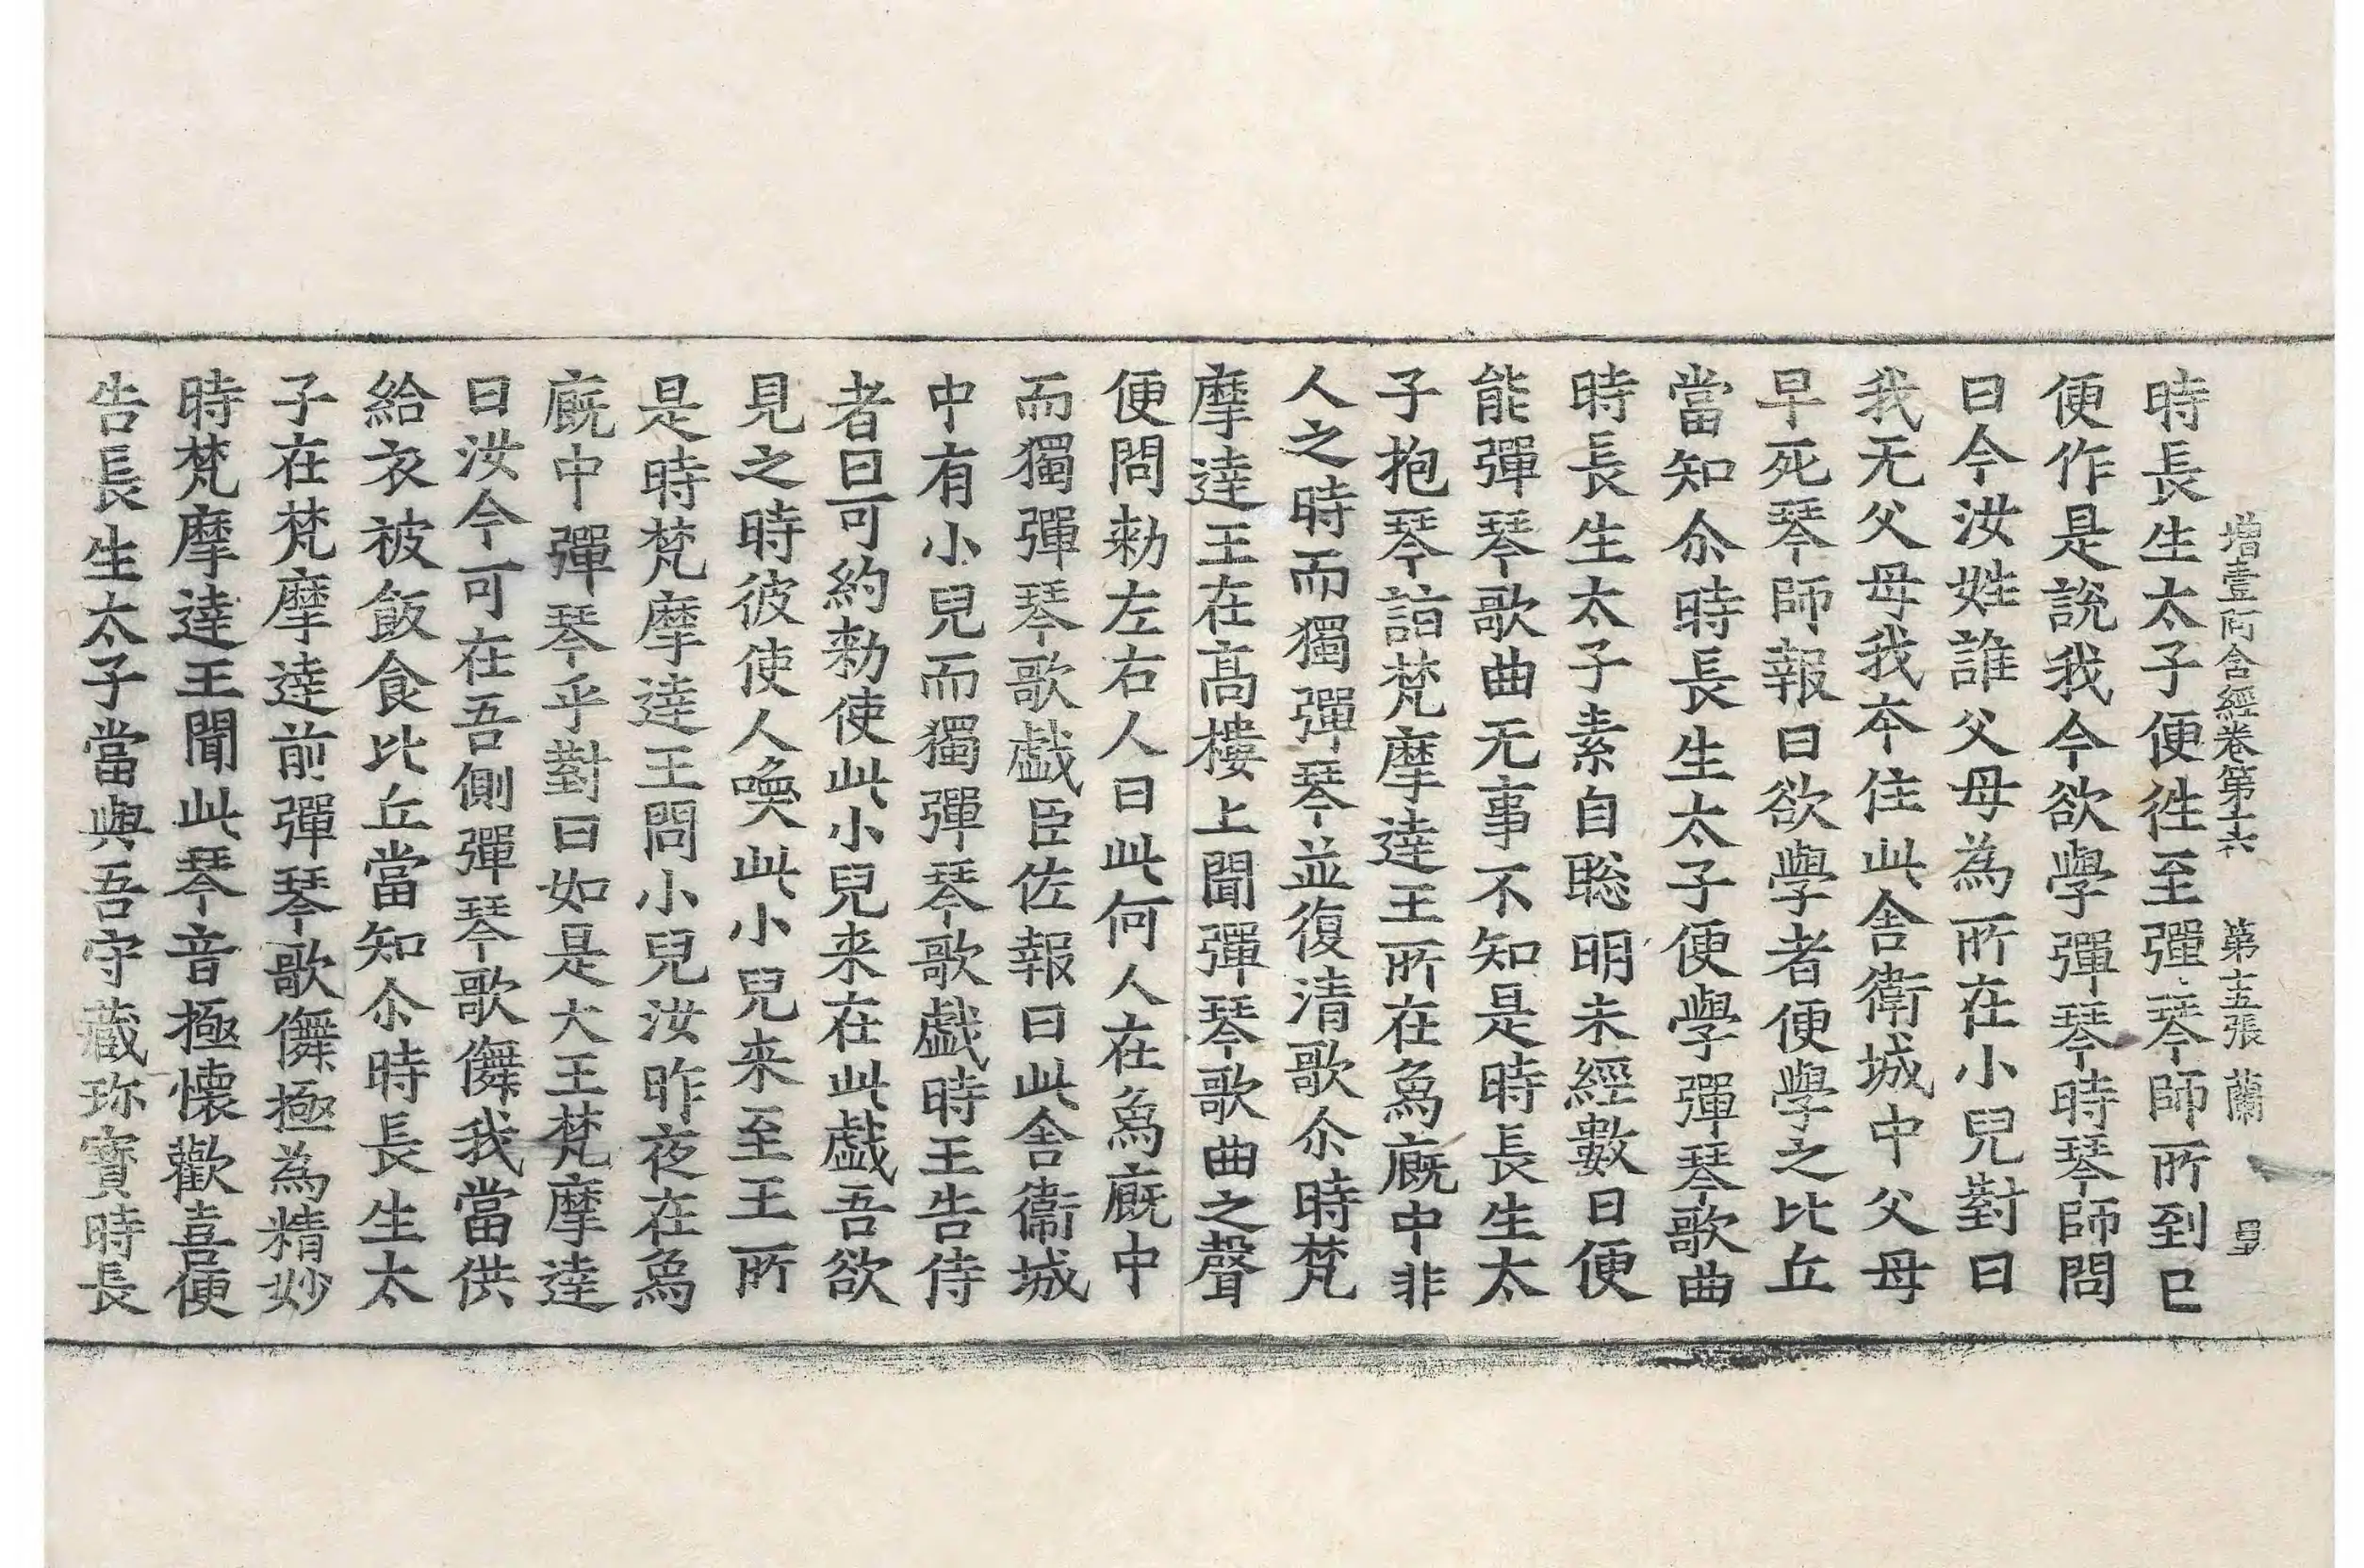 增壹阿含經卷第十六 第十五張 蘭 呈
時長生太子便徃至彈琴師所到已
便作是說我今欲學彈琴時琴師問
曰今汝姓誰父母為所在小兒對曰
我无父母我夲住此舍衛城中父母
早死琴師報曰欲學者便學之比丘
當知尒時長生太子便學彈琴歌曲
時長生太子素自聡明未經數日便
能彈琴歌曲无事不知是時長生太
子抱琴詣梵摩達王所在為廐中非
人之時而獨彈琴並復清歌尒時梵
摩達王在髙樓上聞彈琴歌曲之聲
便問勑左右人曰此何人在為廐中
而獨彈琴歌戱臣佐報曰此舍衞城
中有小兒而獨彈琴歌戱時王告侍
者曰可約勑使此小兒来在此戱吾欲
見之時彼使人喚此小兒来至王所
是時梵摩達王問小兒汝昨夜在為
廐中彈琴乎對曰如是大王梵摩達
曰汝今可在吾側彈琴歌儛我當供
給衣被飯食比丘當知尒時長生太
子在梵摩達前彈琴歌儛極為精妙
時梵摩達王聞此琴音極懷歡喜便
告長生太子當與吾守藏珎寳時長